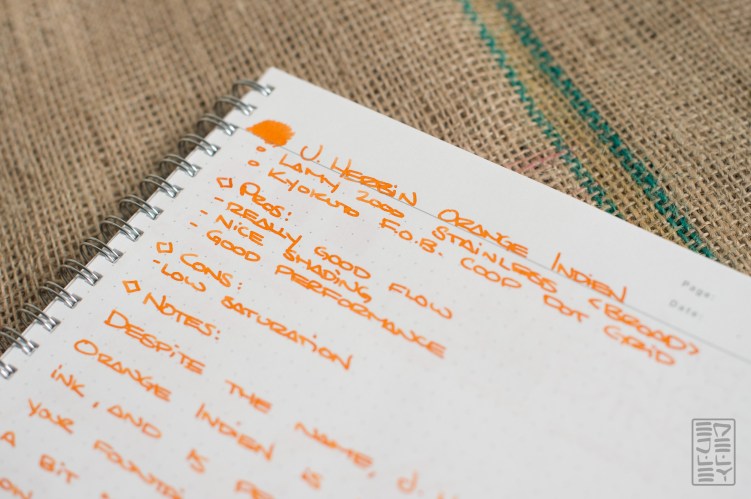 J. HERBIN ORANGE INDIEN
° LAMY 2000 STAINLESS <BROAD>
° KYOKUTO F.O.B. COOP DOT GRID
◇ PROS:
- REALLY GOOD FLOW
- NICE SHADING
- GOOD PERFORMANCE
◇ CONS:
- LOW SATURATION
◇ NOTES:
DESPITE THE NAME, J.
ORANGE INDIEN IS
INK, AND IS
YOUR
A BIT
Page:
Date: